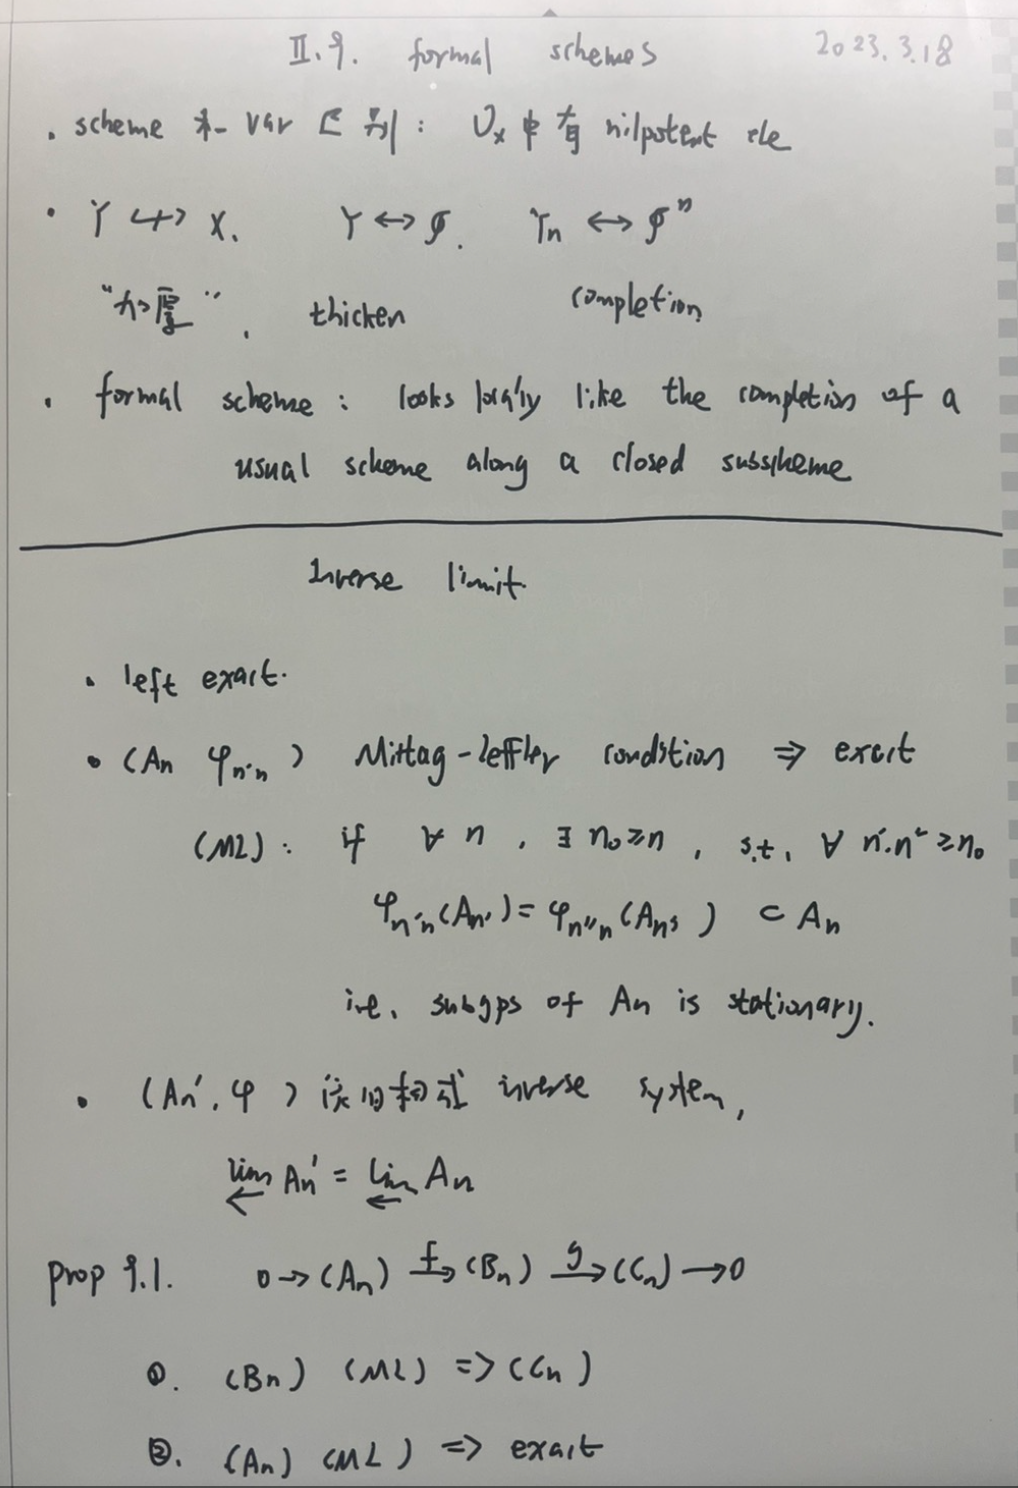 II.9. formal schemes 2023.3.18
· scheme 和 var 区别: O_x 中有 nilpotent ele
· Y ↪ X. Y ↔ 𝓘. Y_n ↔ 𝓘^n
"加厚". thicken completion
· formal scheme: looks locally like the completion of a
usual scheme along a closed subscheme
Inverse limit.
· left exact.
· (An φn'n) Mittag-leffler condition ⇒ exact
(ML): if ∀ n, ∃ n₀≥n, s.t. ∀ n'.n" ≥n₀
φn'n(An')= φn"n(An") ⊂ An
i.e. subgps of An is stationary.
· (An'. φ) inverse system,
lim← An' = lim← An
prop 9.1. 0→(An) f→ (Bn) g→ (Cn)→0
①. (Bn) (ML) => (Cn)
②. (An) (ML) => exact